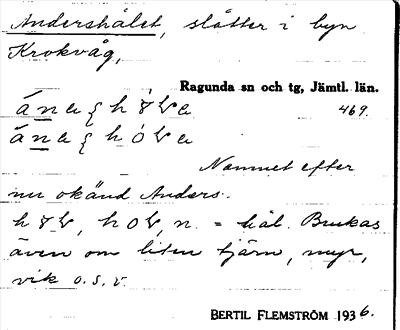 Andershålet, slåtter i byn
Krokvåg,
Ragunda sn och tg, Jämtl. län.
469.
Namnet efter
nu okänd Anders.
= hål. Brukas
även om liten tjärn, myr,
vik o. s. v.
BERTIL FLEMSTRÖM 1936.